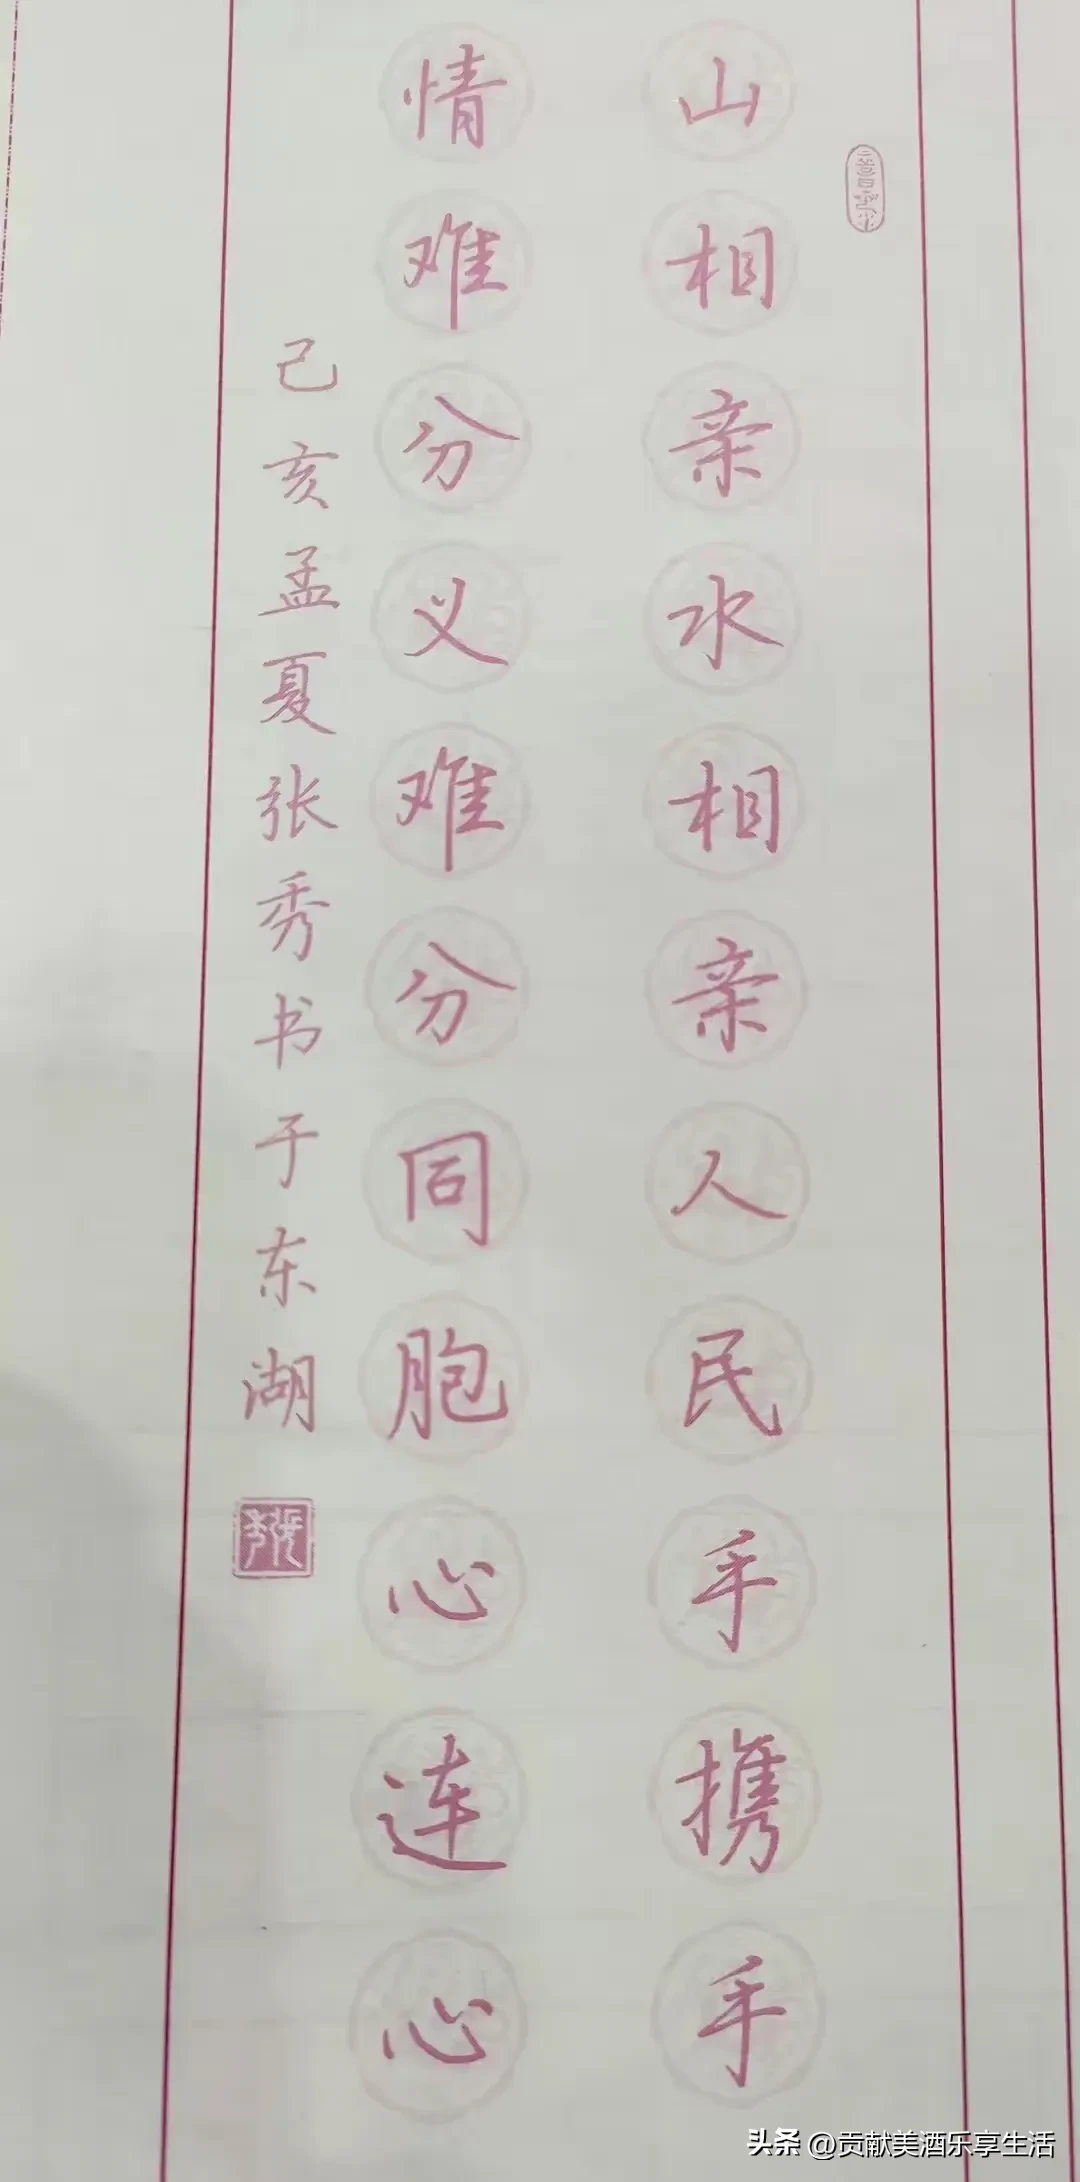 山相亲水相亲人民手携手
情难分义难分同胞心连心
己亥孟夏张秀书于东湖
头条 @贡献美酒乐享生活